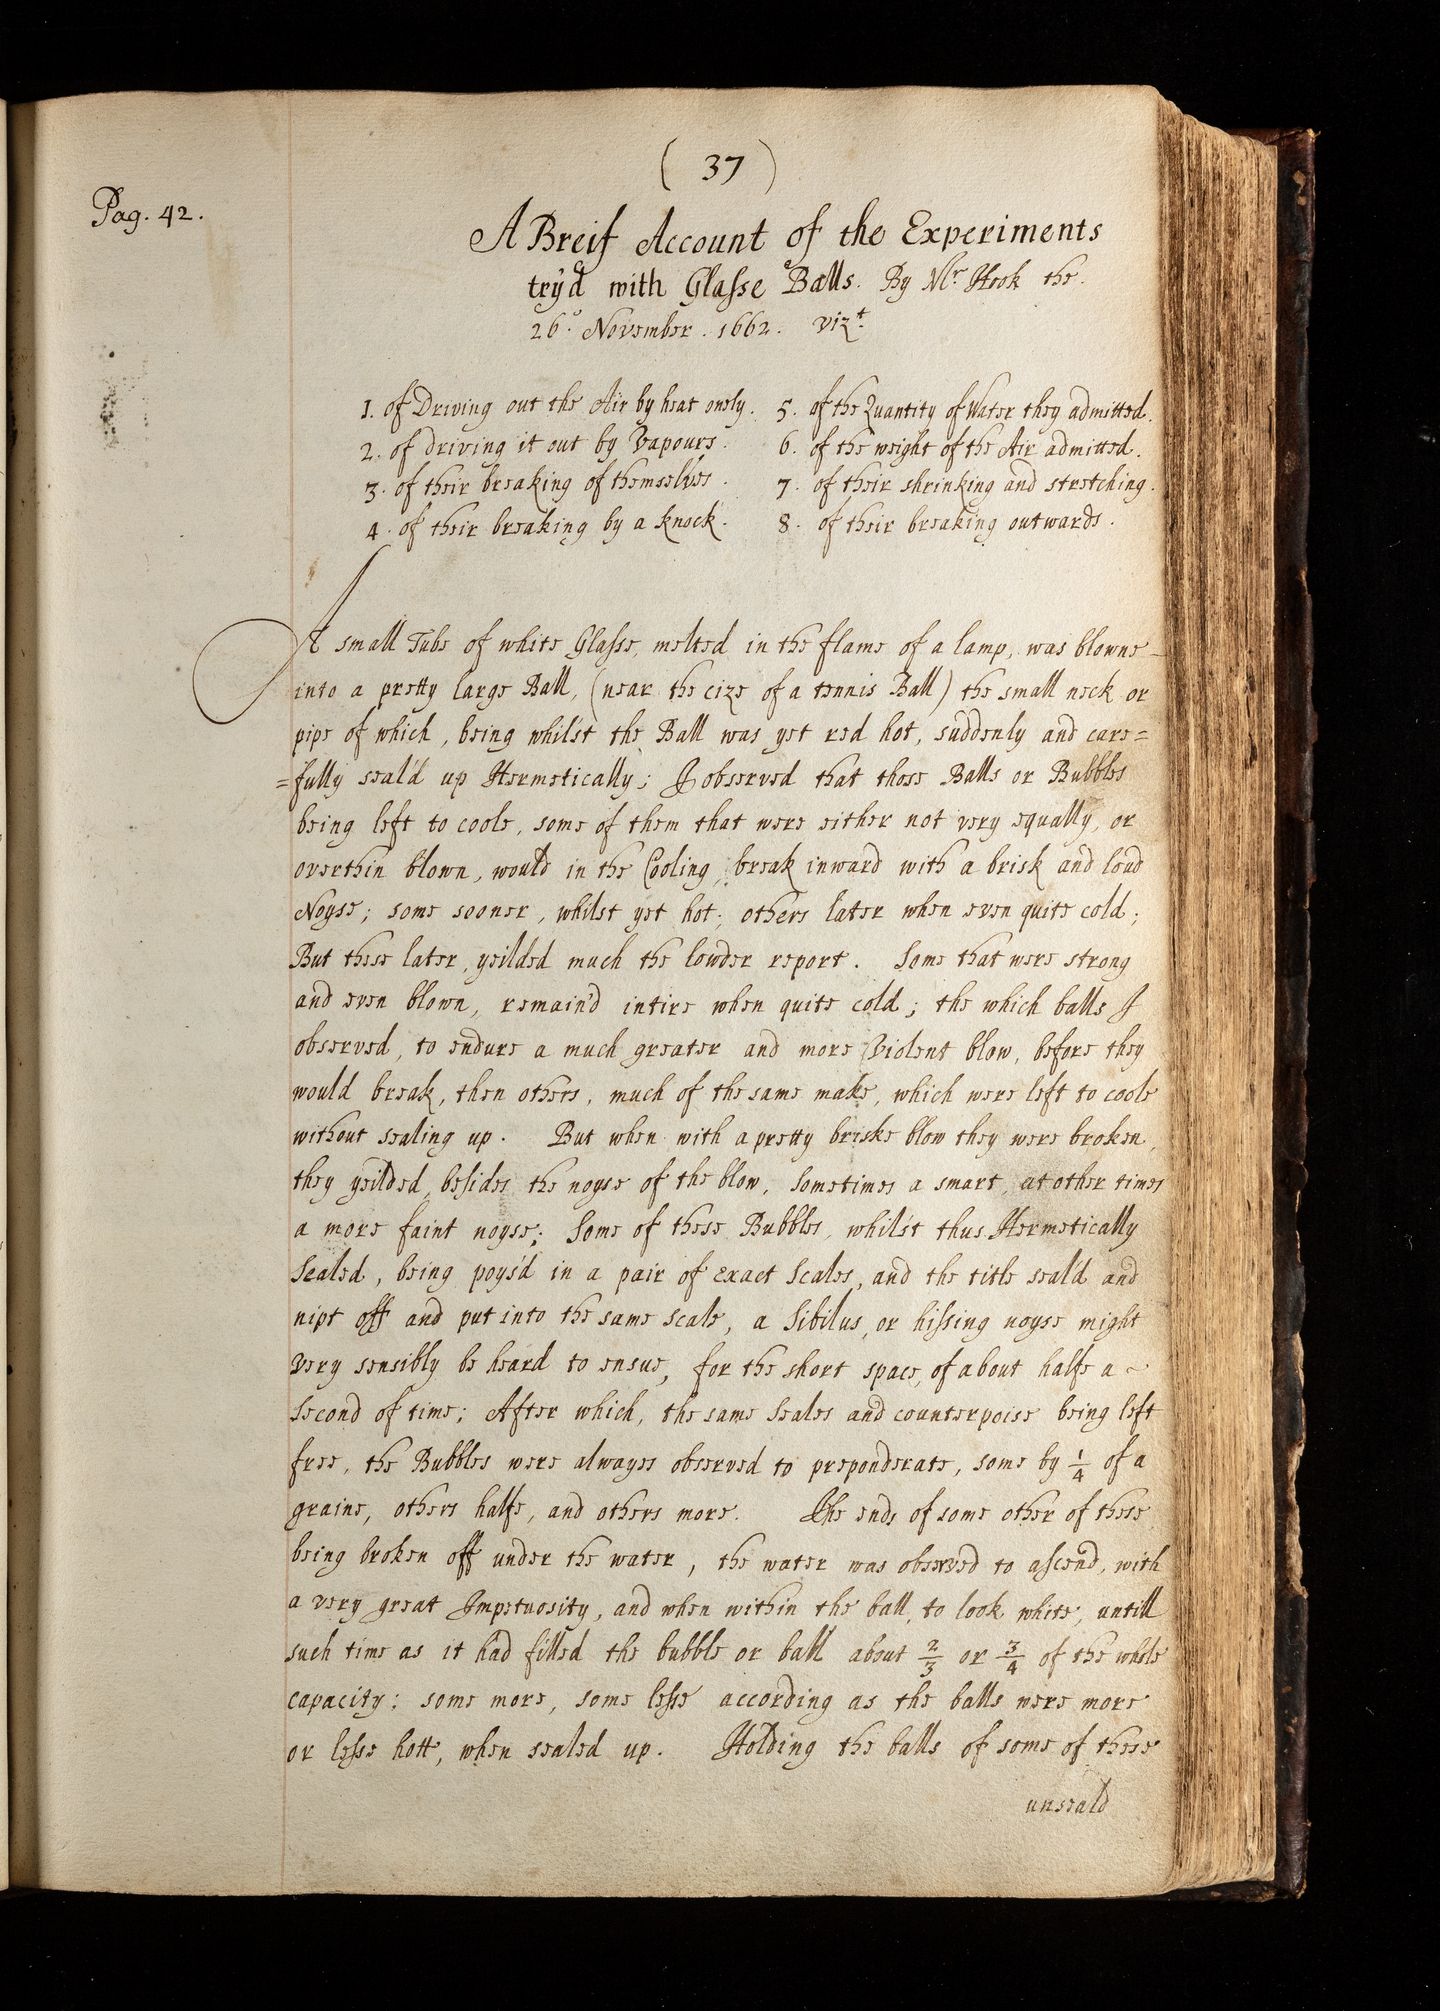 ( 37 )
Pag. 42.
A Breif Account of the Experiments
try'd with Glasse Balls. By Mr. Hook the
26.° November. 1662. vizt.
1. of Driving out the Air by heat onely. 5. of the Quantity of Water they admitted.
2. of driving it out by Vapours. 6. of the weight of the Air admitted.
3. of their breaking of themselves. 7. of their shrinking and stretching.
4. of their breaking by a knock. 8. of their breaking outwards.
A small Tube of white Glasse, melted in the flame of a lamp, was blowne
into a pretty large Ball, (near the cize of a tennis Ball) the small neck or
pipe of which, being whilst the Ball was yet red hot, suddenly and care=
=fully seal'd up Hermetically; I observed that those Balls or Bubbles
being left to coole, some of them that were either not very equally, or
overthin blown, would in the Cooling, break inward with a brisk and loud
Noyse; some sooner, whilst yet hot; others later when even quite cold;
But these later, yeilded much the lowder report. Some that were strong
and even blown, remain'd intire when quite cold; the which balls I
observed, to endure a much greater and more Violent blow, before they
would break, then others, much of the same make, which were left to coole
without sealing up. But when with a pretty briske blow they were broken,
they yeilded, besides the noyse of the blow, sometimes a smart, at other times
a more faint noyse; Some of these Bubbles, whilst thus Hermetically
Sealed, being poys'd in a pair of exact Scales, and the title seald and
nipt off and put into the same scale, a Sibilus, or hissing noyse might
very sensibly be heard to ensue, for the short space, of about halfe a ~
Second of time; After which, the same Scales and counterpoise being left
free, the Bubbles were alwayes observed to preponderate, some by 1/4 of a
graine, others halfe, and others more. The ends of some other of these
being broken off under the water, the water was observed to ascend, with
a very great Impetuosity, and when within the ball, to look white, untill
such time as it had filled the bubble or ball about 2/3 or 3/4 of the whole
capacity: some more, some lesse according as the balls were more
or lesse hott, when sealed up. Holding the balls of some of these
unseald